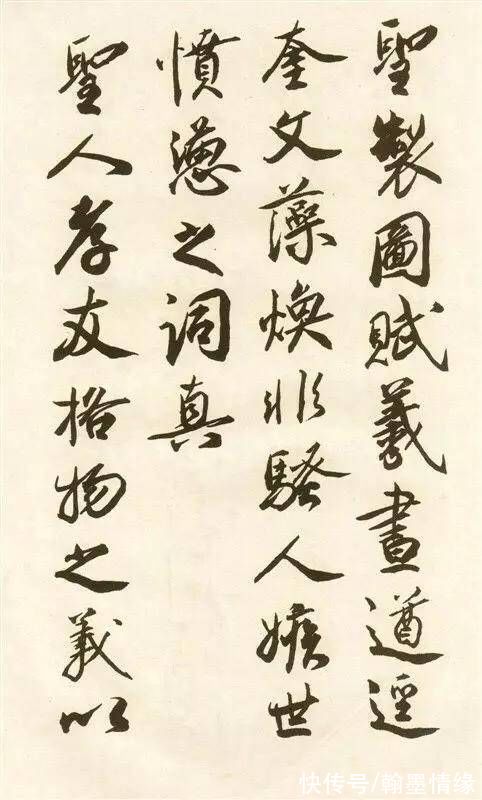 聖製圖賦羲畫遒逕
奎文藻煥非騷人嫉世
憤懣之詞真
聖人孝友格物之義以
快传号/翰墨情缘